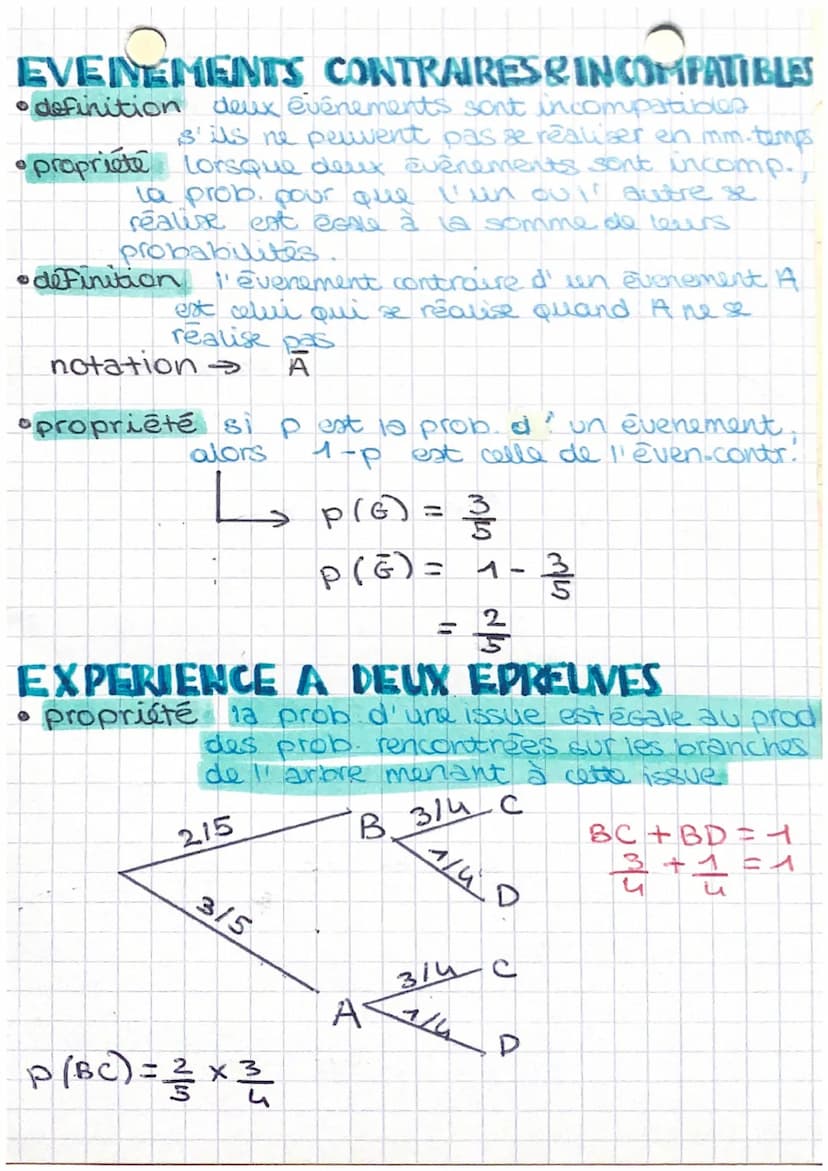 EVENEMENTS CONTRAIRES & INCOMPATIBLES
• definition deux évènements sont incompatibles
s'ils ne peuvent pas se réaliser en mm. temps
• propriété lorsque deux évènements sont incomp.,
la prob. pour que l'un ou l'autre se
réalise est égale à la somme de leurs
probabilités.
• définition l'évenement contraire d'un évenement A
est celui qui se réalise quand A ne se
réalise pas
notation → Ā
• propriété si p est la prob. d'un évenement,
alors 1-p est celle de l'éven.contr.
p(G) = 3/5
p(Ḡ) = 1 - 3/5
= 2/5
EXPERIENCE A DEUX EPREUVES
• propriété la prob. d'une issue est égale au prod
des prob. rencontrées sur les branches
de l'arbre menant à cette issue
2/5 B 3/4 C
1/4 D
BC + BD = 1
3/4 + 1/4 = 1
3/5 A 3/4 C
1/4 D
p(BC) = 2/5 x 3/4